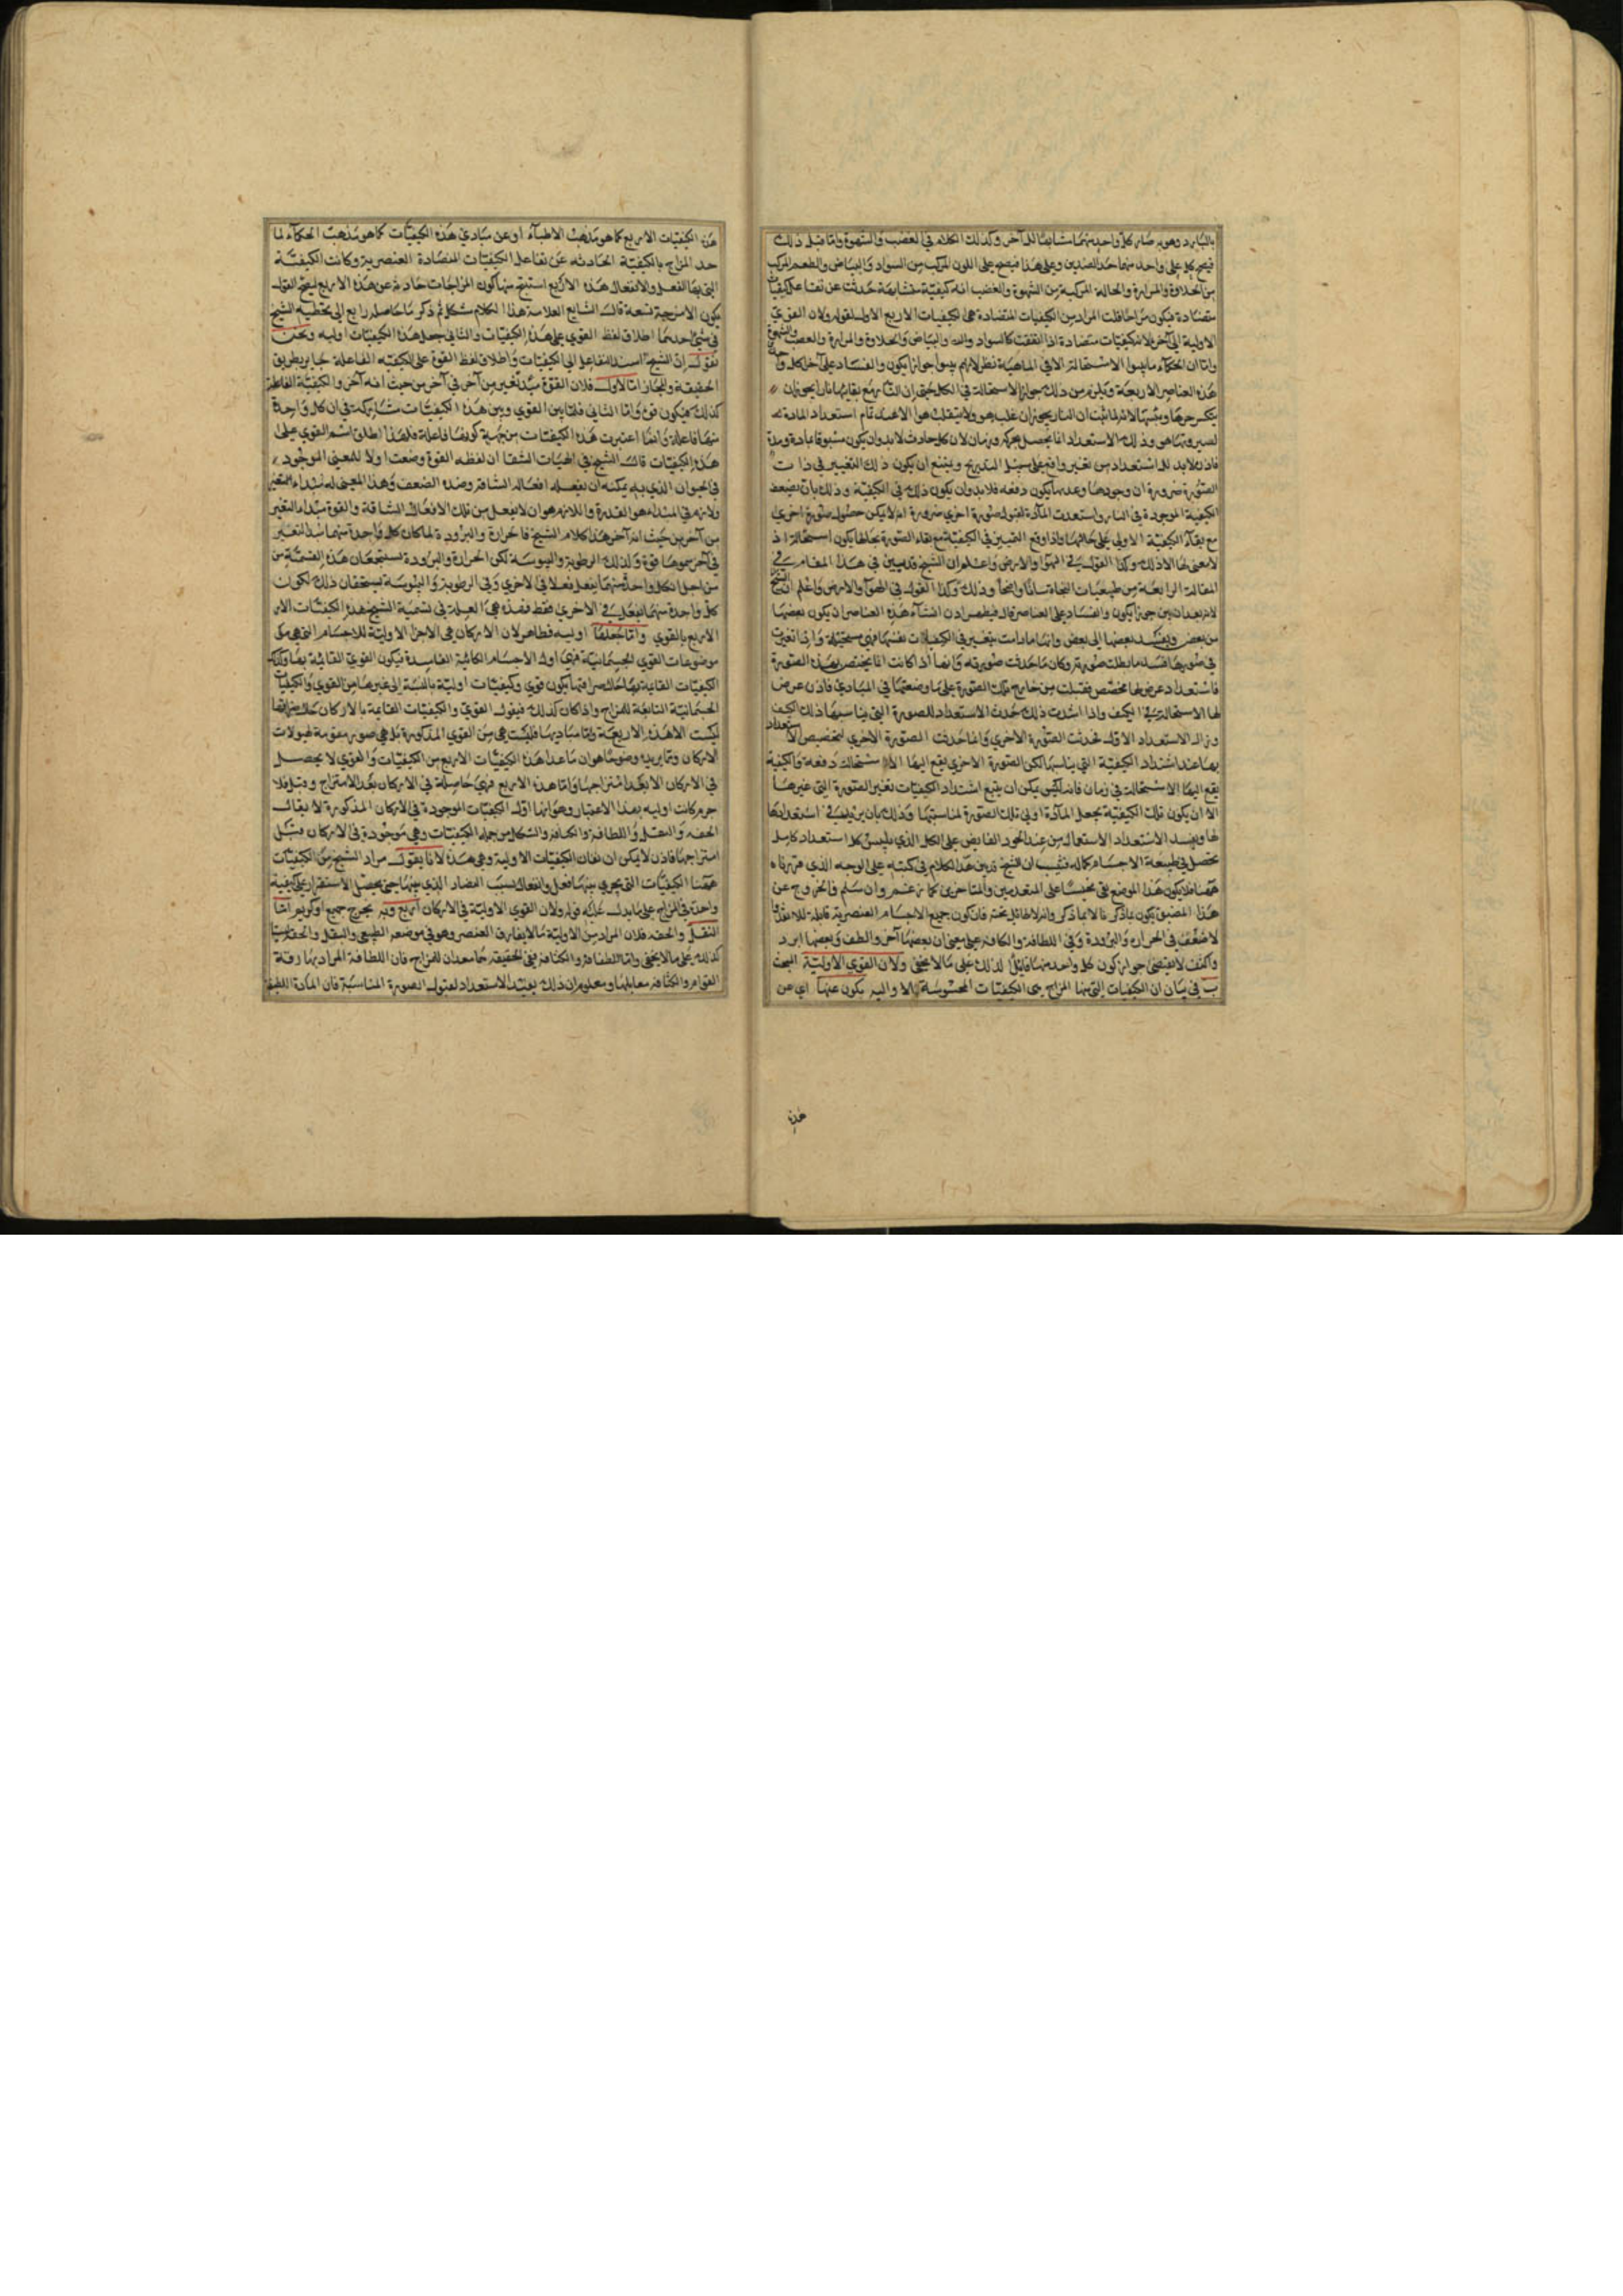 بالبارد وهو به صار كل واحد منهما مشابها للآخر وكذلك الكلام في الغضب والشهوة واما قبل ذلك
فيصح كل على واحد منهما حد الضدين وعلى هذا فيصح على اللون المركب من السواد والبياض والطعم المركب
من الحلاوة والمرارة والحالة المركبة من الشهوة والغضب انه كيفية متشابهة حدثت عن تفاعل كيفيات
متضادة فيكون مزاجا قلت المراد من الكيفيات المتضادة هي الكيفيات الاربع الاول لقوله ولان القوي
الاولية الى آخره لا كيفيات متضادة اذا اتفقت كالسواد والبياض والحلاوة والمرارة والغضب والشهوة
واما ان الحكماء ما يقبوا الاستحالة الا في الماهية نظر لانهم يقبوا جواز الكون والفساد على آخر كل واحد
هذه العناصر الاربعة ويلزم من ذلك جواز الاستحالة في الكل حتى ان النار مع بقائها نارا يجوز ان
ينكسر حرها وبيسها لانه لما ثبت ان النار يجوز ان تنقلب هواء ولا ينقلب هواء الا عند تمام استعداد المادة له
لصيرورتها هو وذلك الاستعداد انما يحصل بحركة وزمان لان كل حادث لا بد وان يكون مسبوقا بمادة ومدة
فاذن لا بد للاستعداد من تغير واقع على سبيل التدريج ويمتنع ان يكون ذلك التغيير في ذات
الصورة ضرورة ان وجودها وعدمها يكون دفعة فلا بد وان يكون ذلك في الكيفية وذلك بان يضعف
الكيفية الموجودة في النار واستعدت المادة لقبول صورة اخرى ضرورة انه لا يمكن حصول صورة اخرى
مع بقاء الكيفية الاولى على حالها واذا وقع التغيير في الكيفية مع بقاء الصورة بحالها يكون استحالة اذ
لا معنى لها الا ذلك وكذا القول في الهواء والارض واعلم ان الشيخ قد بين في هذا المقام في
المقالة الرابعة من طبيعيات النجاة بيانا واضحا وذلك وكذا القول في الهواء والارض واعلم ان الشيخ
لانه بعد ان بين جواز الكون والفساد على العناصر قال فيظهر اذن انشاء هذه العناصر ان يكون بعضها
من بعض ويفسد بعضها الى بعض وانها ما دامت يتغير في الكيفيات نفسها فهي مستحيلة واذا تغيرت
في صورها فسد ما بطلت صورته وكان ما حدثت صورته وانها اذا كانت انما يختص بهذه الصورة
فاستعداد عرض لها مخصص فقبلت من خارج تلك الصورة على ما وضعتها في المبادي فاذن عرض
لها الاستحالة في الكيف واذا اشتدت ذلك حدث الاستعداد للصورة التي يناسبها ذلك الكيف
وزال الاستعداد الاول فحدثت الصورة الاخرى وانما حدثت الصورة الاخرى لتخصيص الاستعداد
بها عند اشتداد الكيفية التي يناسبها لكن الصورة الاخرى يقع اليها الاستحالة دفعة والكيفية
يقع اليها الاستحالة في زمان فانه ليس يمكن ان يتبع اشتداد الكيفيات تغير الصورة التي غيرها
الا ان يكون تلك الكيفية تجعل المادة اولى بتلك الصورة لمناسبتها وذلك بان يزيد في استعدادها
لها ويفسد الاستعداد الاستعمال من عند الجود الفايض على الكل الذي يلبس كل استعداد كامل
يحصل في طبيعة الاجسام كماله فثبت ان الشيخ زيف هذا الكلام في كتبه على الوجه الذي قررناه
ههنا فلا يكون هذا الموضع نحيسا على المتقدمين والمتاخرين كما زعم وان سلم فالخروج عن
هذا المضيق يكون بما ذكر فالاعتماد على ما ذكر والله لا طائل تحته فان كون جميع الاجسام العنصرية قابلة للاشتداد
لا ضعف في الحرارة والبرودة وفي اللطافة والكثافة على معنى ان بعضها آخر والطف وبعضها ابرد
واكثف لا يقتضي جواز كون كل واحد منها قابلا لذلك على ما لا يخفى ولان القوي الاولية البحث
ب في بيان ان الكيفيات التي منها المزاج هي الكيفيات المحسوسة الاوالية يكون عنها اي عن
هذه
هذه الكيفيات الاربع كما هو مذهب الاطباء او عن مبادي هذه الكيفيات كما هو مذهب الحكماء لما
حد المزاج بالكيفية الحادثة عن تفاعل الكيفيات المتضادة العنصرية وكانت الكيفية
التي بها الفعل والانفعال هذه الاربع استنتج منها كون المزاجات حادثة عن هذه الاربع ليصح القول
بكون الامزجة تسعة قال الشارح العلامة هذا الكلام مشكل ثم ذكر ما حاصله راجع الى تخطية الشيخ
في شيئين احدهما اطلاق لفظ القوي على هذه الكيفيات والثاني جعل هذه الكيفيات اولية ونحن
نقول ان الشيخ اسند التفاعل الى الكيفيات واطلاق لفظ القوة على الكيفية الفاعلة جايز بطريق
الحقيقة والمجاز اما الاول فلان القوة مبدأ تغير من آخر في آخر من حيث انه آخر والكيفية الفاعلة
كذلك فيكون قوة واما الثاني فلما بين القوي وبين هذه الكيفيات مشاركة في ان كل واحدة
منها فاعلة وانما اعتبرت هذه الكيفيات من جهة كونها فاعلة فلهذا اطلق اسم القوي على
هذه الكيفيات قال الشيخ في الهيات الشفا ان لفظة القوة وضعت اولا للمعنى الموجود
في الحيوان الذي به يمكنه ان يفعل افعالا شاقة وضده الضعف وهذا المعنى له مبداء المتغير
ولازم في المبداء هو القدرة واللازم هو ان لا ينفعل من تلك الافعال الشاقة والقوة مبداء التغير
من آخر من حيث انه آخر هذا كلام الشيخ فالحرارة والبرودة لما كان كل واحدة منهما مبدأ لتغير
في آخر سموها قوة وكذلك الرطوبة واليبوسة لكن الحرارة والبرودة يستحقان هذه القسمة من
من اجل ان كل واحدة منهما يفعل فعلا في الاخرى وفي الرطوبة واليبوسة يستحقان ذلك لكون
كل واحدة منهما يفعل في الاخرى فقط فهذه هي العلة في تسمية الشيخ هذه الكيفيات الار
الاربع بالقوي واما جعلها اولية فظاهر لان الاركان هي الاجزاء الاولية للاجسام التي هي
موضوعات القوي الجسمانية فهي اول الاجسام الكائنة الفاسدة فيكون القوي القائمة بها وكذا
الكيفيات القائمة بها حال صرافتها يكون قوي وكيفيات اولية بالنسبة الى غيرها من القوي والكيفيات
الجسمانية التابعة للمزاج واذا كان كذلك فنقول القوي والكيفيات القائمة بالاركان حال صرافتها
ليست الا هذه الاربعة واما مباديها فليست هي من القوي المذكورة بل هي صور مقومة لهيولات
الاركان ومما يزيده وضوحا هو ان ما عدا هذه الكيفيات الاربع من الكيفيات والقوي لا يحصل
في الاركان الا بعد امتزاجها واما هذه الاربع فهي حاصلة في الاركان بعد الامتزاج وقبله فلا
جرم كانت اولية بهذا الاعتبار وهو انها اول الكيفيات الموجودة في الاركان المذكورة لا يقال
الخفة والثقل واللطافة والكثافة والشكل من جملة الكيفيات وهي موجودة في الاركان قبل
امتزاجها فاذن لا يمكن ان يقال الكيفيات الاولية وهي هذه لانا نقول مراد الشيخ من الكيفيات
ههنا الكيفيات التي يجري بينها فعل وانفعال بسبب التضاد الذي بينها حتى يحصل الاستقرار على كيفية
واحدة في المزاج على ما يدل عليه قوله ولان القوي الاولية في الاركان اربع وبه يخرج جميع ما ذكرتم اما
الثقل والخفة فلان المراد من الاولية ما لا يفارق العنصر وهو في موضعه الطبيعي والثقل والخفة ليسا
كذلك على ما لا يخفى واما اللطافة والكثافة ففي الحقيقة هما معدان للمزاج فان اللطافة المراد بها رقة
القوام والكثافة مقابلها ومعلوم ان ذلك يفيد الاستعداد لقبول الصورة المناسبة فان المادة اللطيفة